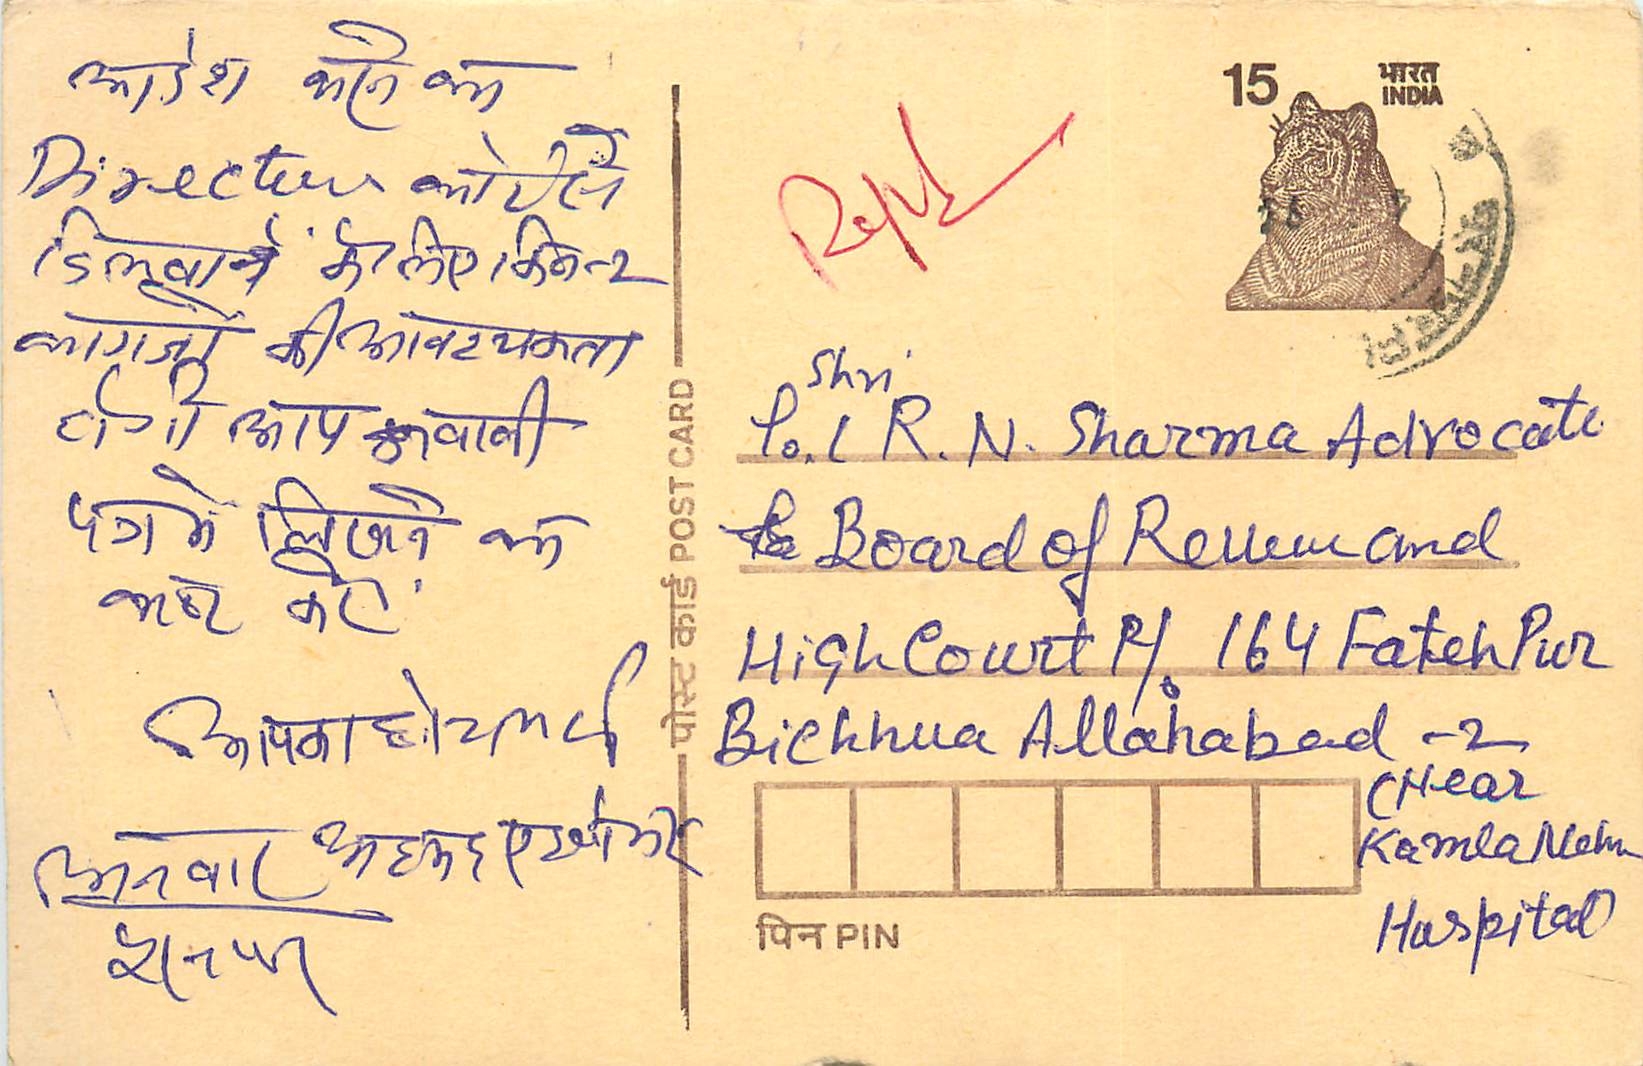 आदेश करने का
Director को ऐसे
डिलवाने के लिए किन-2
कागजों की आवश्यकता
होगी आप जवाबी
पत्र में लिखने का
कष्ट करें
आपका शुभेच्छु
अनवार अहमद
ज्ञानपुर
Reply
15 भारत
INDIA
पोस्ट कार्ड POST CARD
Shri
To. R. N. Sharma Advocate
Board of Revenue and
High Court R/o 164 Fatehpur
Bichhua Allahabad -2
(Near
Kamla Nehru
Hospital
पिन PIN